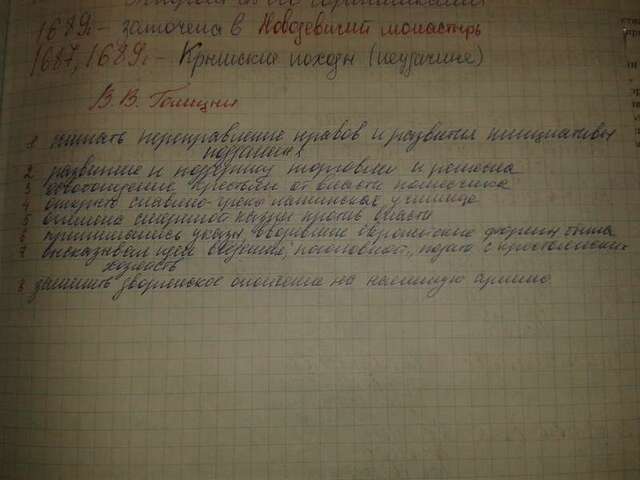 1689г - заточена в Новодевичий монастырь
1687, 1689г. - Крымские походы (неудачные)
В. В. Голицын
1 считать переправление нравов и развития инициативы
подданных
2 развитие и поддержку торговли и ремесла
3 освобождение крестьян от власти помещика
4 открыть славяно-греко латинская училище
5 отмена смертной казни против власти
6 принимались указы, вводившие европейские формы быта
7 высказывал идеи о подати с крестьянских
хозяйств
8 заменить дворянское ополчение на наёмную армию.